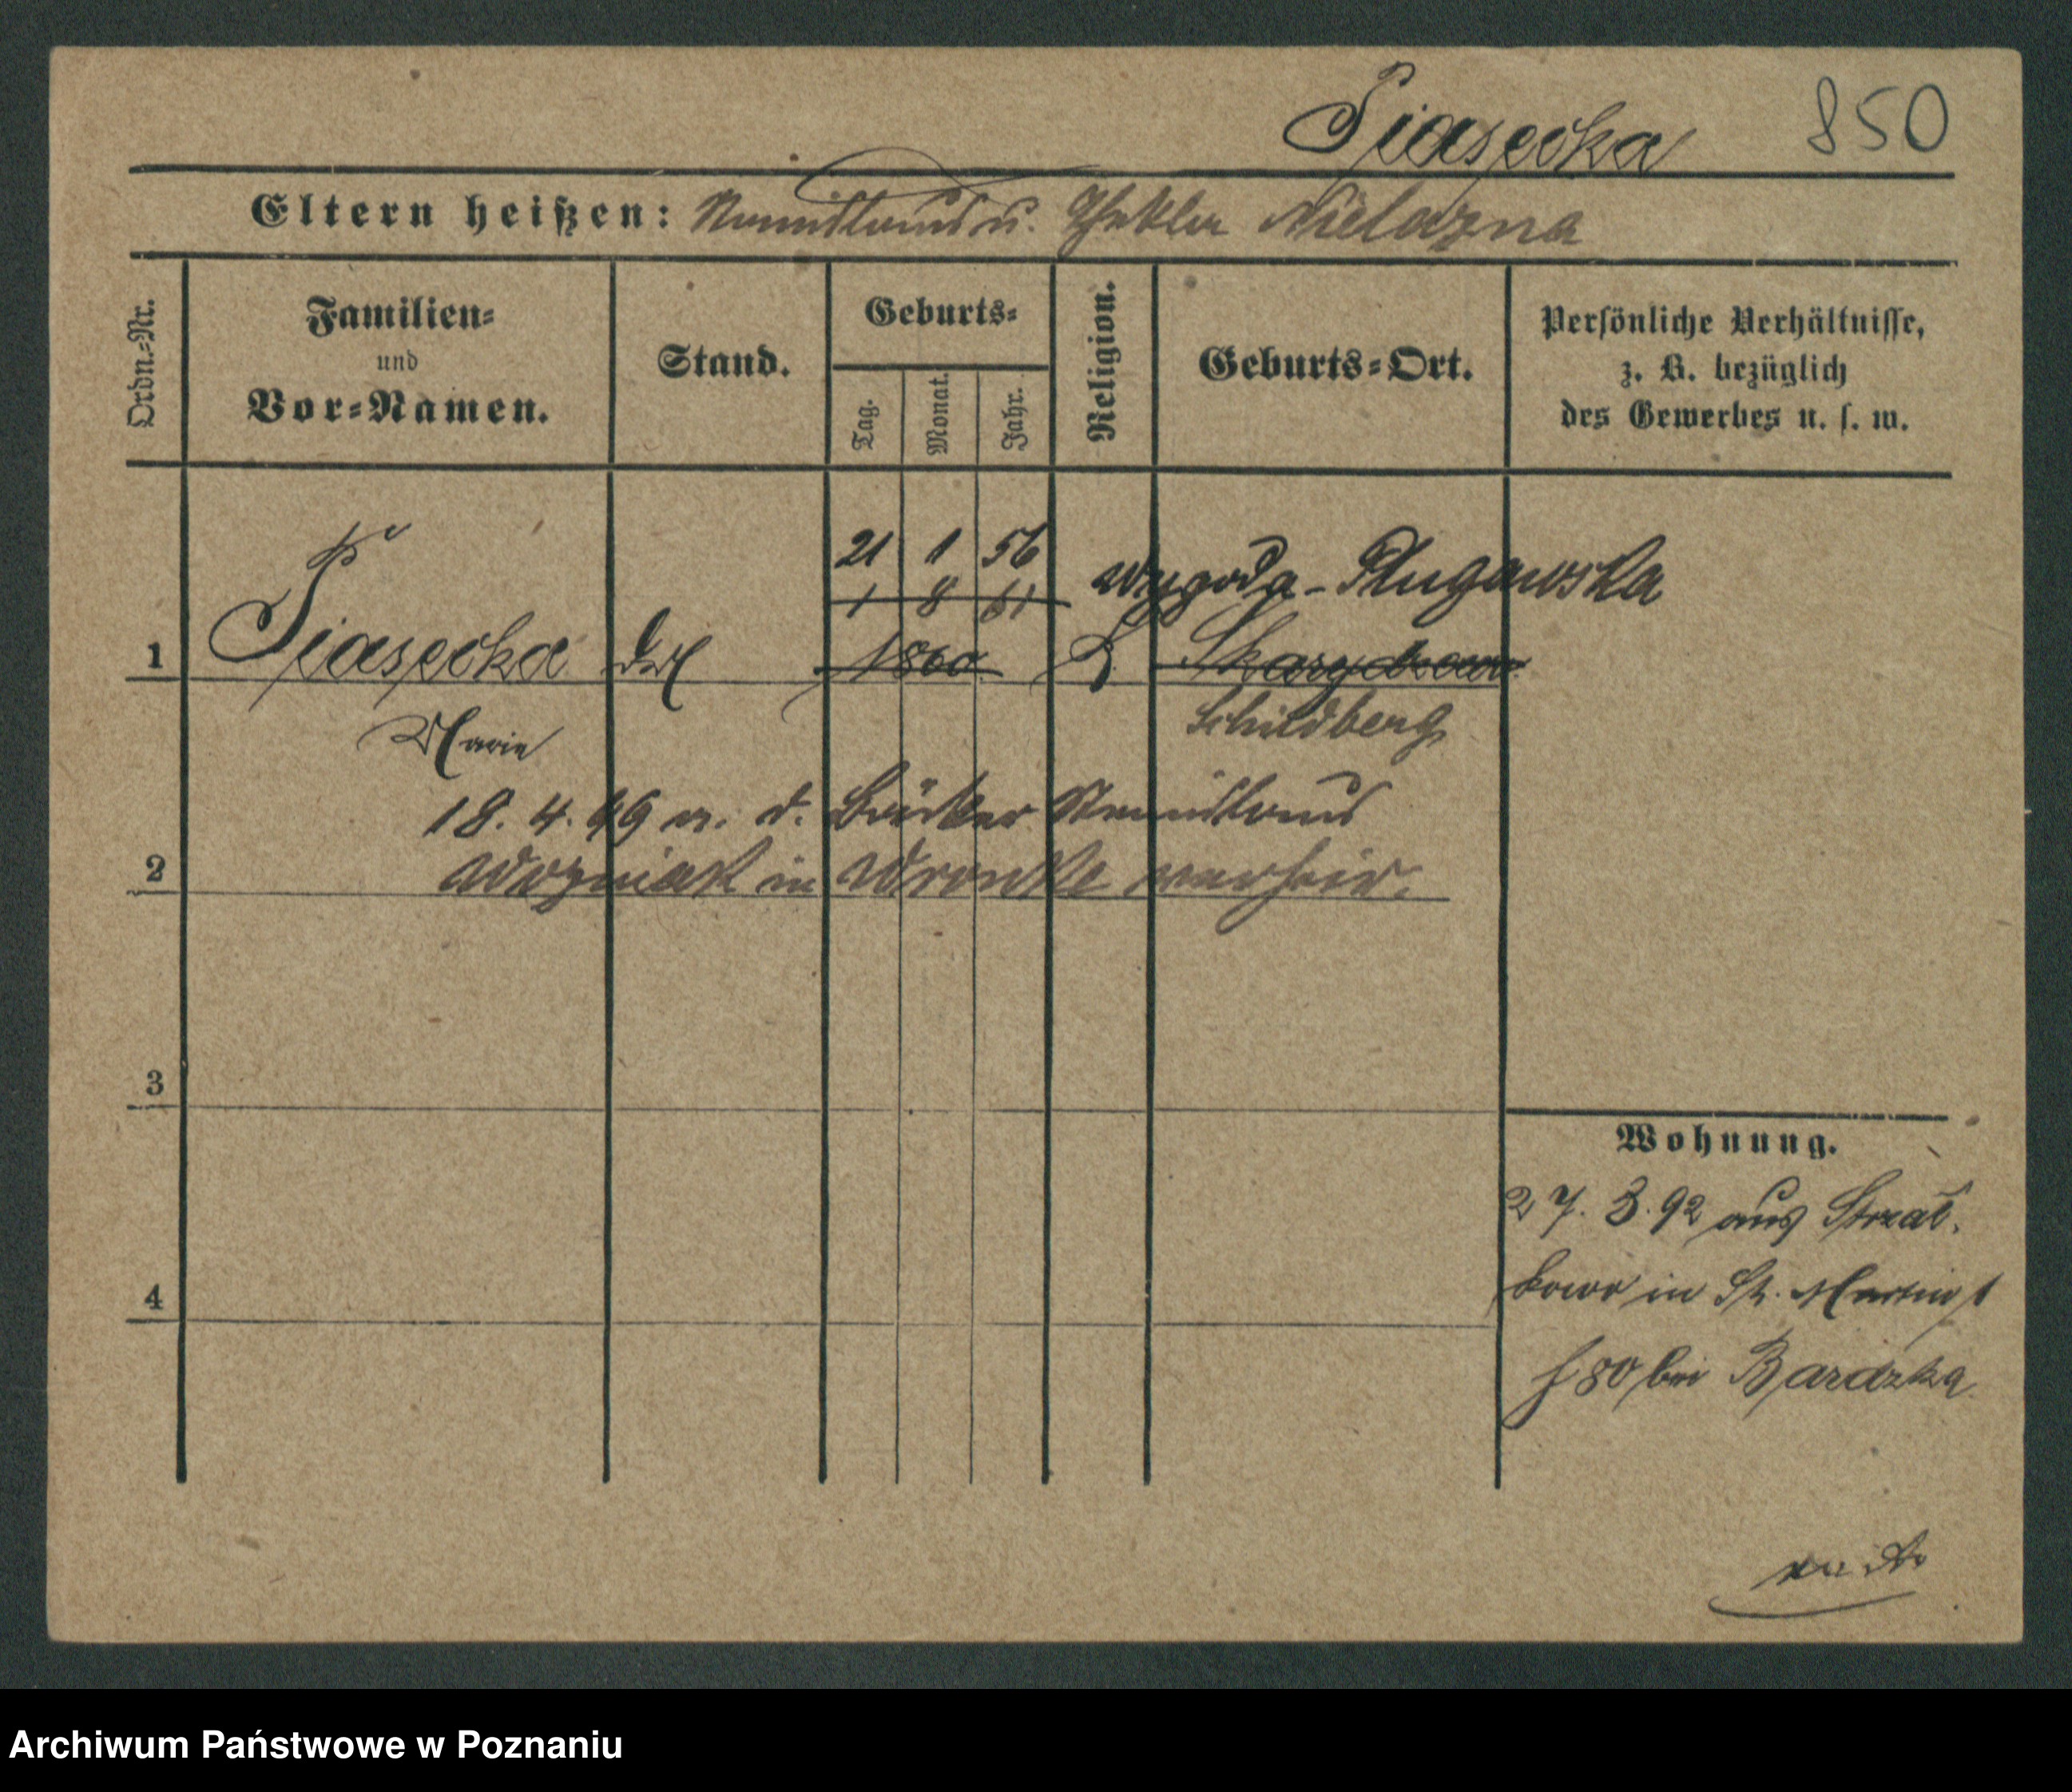 Piasecka 850
Eltern heißen: Stanislaus u. Thekla Nielazna
Ordn.-Nr.
Familien-
und
Vor-Namen.
Stand.
Geburts-
Tag.
Monat.
Jahr.
Religion.
Geburts-Ort.
Persönliche Verhältnisse,
z. B. bezüglich
des Gewerbes u. s. w.
21 1 56
Wygoda-Plugawska
1 8 61
1 Piasecka 1860
Schildberg
Marie
18. 4. 99 m. d. Bäcker Stanislaus
2 Wozniak in Wronke verheir.
3
4
Wohnung.
27. 3. 92 aus Strzal.
kowo in St. Martin
80 bei Bardzka
Archiwum Państwowe w Poznaniu